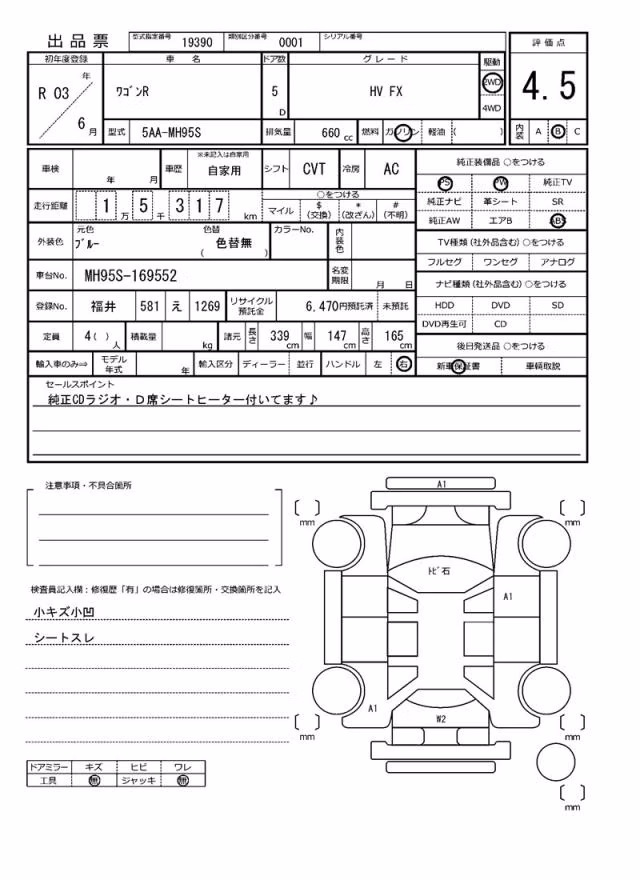 出品票 型式指定番号 19390 類別区分番号 0001 シリアル番号
評価点
4.5
内装 A B C
初年度登録 車名 ドア数 グレード 駆動
R 03 年 6 月 ワゴンR 5 D HV FX 2WD
4WD
型式 5AA-MH95S 排気量 660 cc 燃料 ガソリン 軽油 ( )
車検 年 月 車歴 ※未記入は自家用 自家用 シフト CVT 冷房 AC
走行距離 1 万 5 千 3 1 7 km
○をつける
マイル $ (交換) * (改ざん) # (不明)
外装色 元色 ブルー 色替 ( 色替無 ) カラーNo. 内装色
車台No. MH95S-169552 名変期限 月 日
登録No. 福井 581 え 1269 リサイクル預託金 6,470円預託済 未預託
定員 4( )人 積載量 kg 諸元 長さ 339 cm 幅 147 cm 高さ 165 cm
輸入車のみ⇒ モデル年式 年 輸入区分 ディーラー 並行 ハンドル 左 右
純正装備品 ○をつける
PS PW 純正TV
純正ナビ 革シート SR
純正AW エアB ABS
TV種類(社外品含む)○をつける
フルセグ ワンセグ アナログ
ナビ種類(社外品含む)○をつける
HDD DVD SD
DVD再生可 CD
後日発送品 ○をつける
新車保証書 車輌取説
セールスポイント
純正CDラジオ・D席シートヒーター付いてます♪
注意事項・不具合箇所
検査員記入欄:修復歴「有」の場合は修復箇所・交換箇所を記入
小キズ小凹
シートスレ
ドアミラー キズ ヒビ ワレ
工具 無 ジャッキ 無
A1
mm mm
トビ石
A1
A1
W2
mm mm
mm